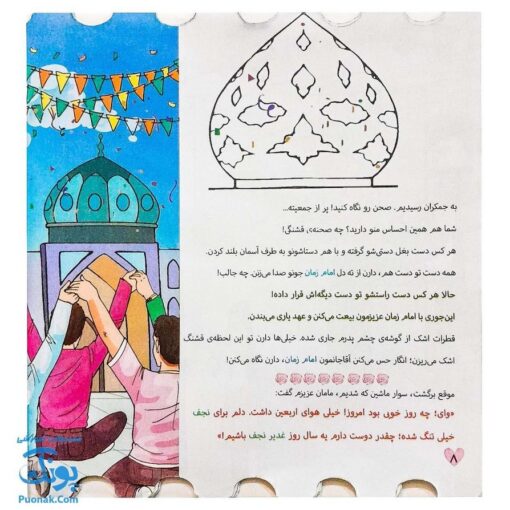 به جمکران رسیدیم. صحن رو نگاه کنید! پر از جمعیته...
شما هم همین احساس منو دارید؟ چه صحنه‌ی قشنگی!
هر کس دست بغل دستی‌شو گرفته و با هم دستاشونو به طرف آسمان بلند کردن.
همه دست تو دست هم، دارن از ته دل امام زمان جونو صدا می‌زنن. چه جالب!
حالا هر کس دست راستشو تو دست دیگه‌اش قرار داده!
این‌جوری با امام زمان عزیزمون بیعت می‌کنن و عهد یاری می‌بندن.
قطرات اشک از گوشه‌ی چشم پدرم جاری شده. خیلی‌ها دارن تو این لحظه‌ی قشنگ
اشک می‌ریزن؛ انگار حس می‌کنن آقاجانمون امام زمان، دارن نگاه می‌کنن!
موقع برگشت، سوار ماشین که شدیم، مامان عزیزم گفت:
«وای؛ چه روز خوبی بود امروز! خیلی هوای اربعین داشت. دلم برای نجف
خیلی تنگ شده؛ چقدر دوست دارم یه سال روز غدیر نجف باشیم!»
۸
پونک
Puonak.Com